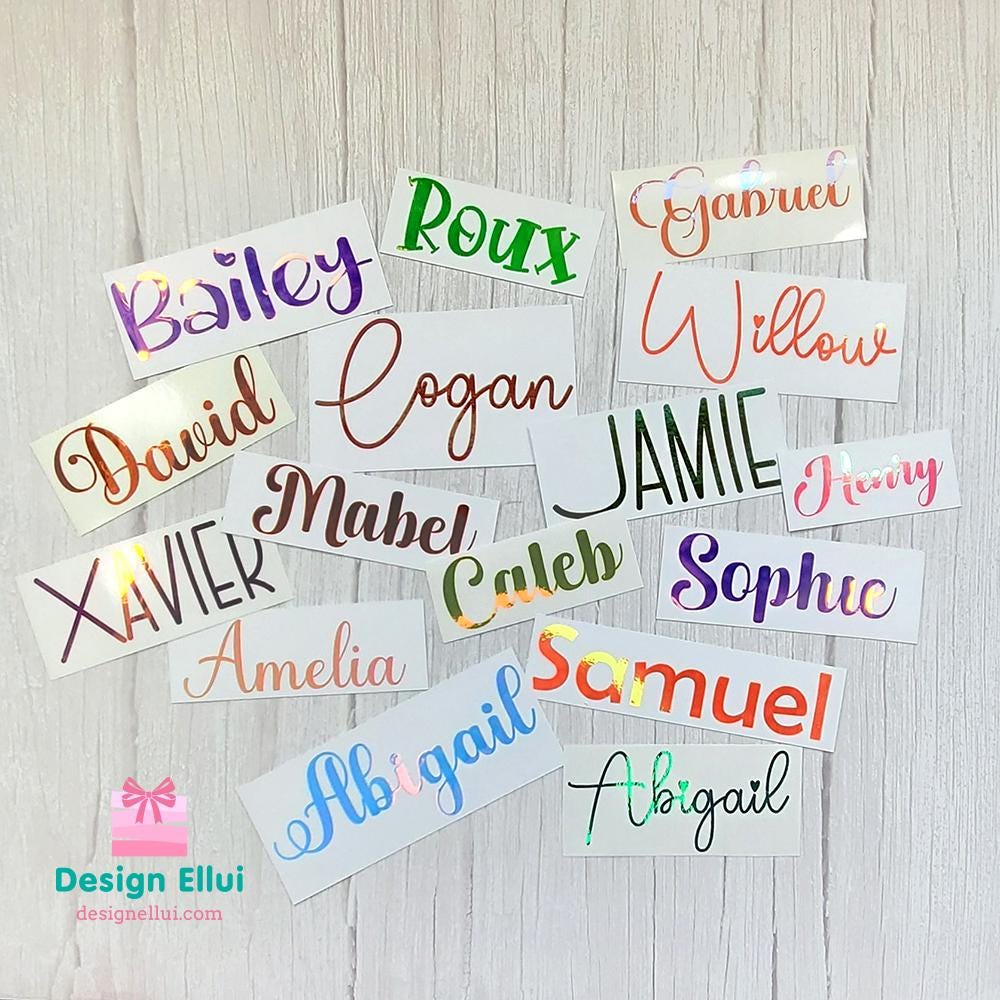 Roux
Gabriel
Bailey
Willow
Logan
David
JAMIE
Henry
Mabel
XAVIER
Caleb
Sophie
Amelia
Samuel
Abigail
Abigail
Design Ellui
designellui.com